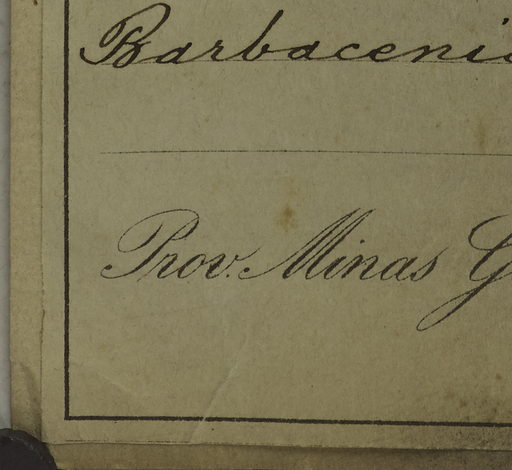 Barbaceni
Prov. Minas G